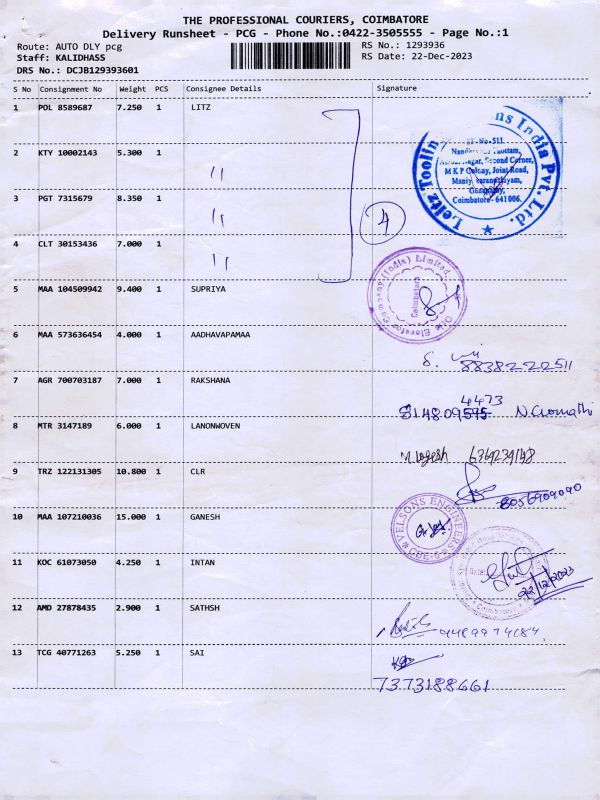 THE PROFESSIONAL COURIERS, COIMBATORE
Delivery Runsheet - PCG - Phone No.:0422-3505555 - Page No.:1
Route: AUTO DLY pcg
Staff: KALIDHASS
DRS No.: DCJB129393601
RS No.: 1293936
RS Date: 22-Dec-2023
S No Consignment No Weight PCS Consignee Details Signature
1 POL 8589687 7.250 1 LITZ
2 KTY 10002143 5.300 1 "
3 PGT 7315679 8.350 1 "
4 CLT 30153436 7.000 1 "
4
Leitz Toolin ns India Pvt. Ltd.
SF-No-511,
Second Corner,
M K P Colony, Joint Road,
Coimbatore- 641006.
5 MAA 104509942 9.400 1 SUPRIYA
Otis Elevator Company (India) Limited
Coimbatore
6 MAA 573636454 4.000 1 AADHAVAPAMAA
8838222511
7 AGR 700703187 7.000 1 RAKSHANA
4473
814809595
8 MTR 3147189 6.000 1 LANONWOVEN
9 TRZ 122131305 10.800 1 CLR
8056909090
10 MAA 107210036 15.000 1 GANESH
VELSONS ENGINEERS
CBE-6
11 KOC 61073050 4.250 1 INTAN
22/12/2023
Coimbatore
12 AMD 27878435 2.900 1 SATHSH
13 TCG 40771263 5.250 1 SAI
7373188661